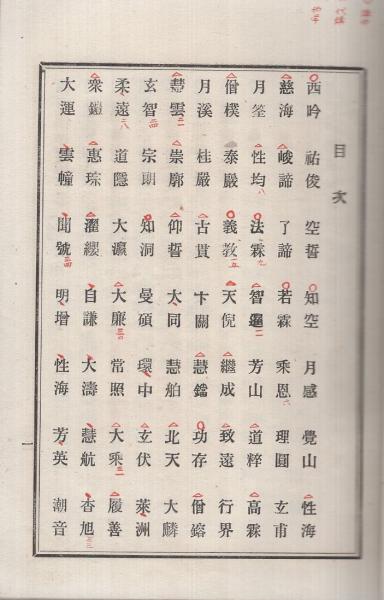 目次
西吟 祐俊 空誓 知空 月感 覺山 性海
慈海 峻諦 了諦 若霖 乘恩 理圓 玄甫
月筌 性均 法霖 智暹 芳山 道粹 高霖
僧樸 泰嚴 義教 天倪 繼成 致遠 行界
月溪 桂嚴 古貫 卞關 慧鐺 功存 僧鎔
慧雲 崇廓 仰誓 太同 慧舶 北天 大麟
玄智 宗朗 知洞 曼碩 環中 玄伏 萊洲
柔遠 道隱 大瀛 大廉 常照 大乘 履善
衆鎧 惠琮 濯纓 自謙 大濤 慧航 杏旭
大運 雲幢 聞號 明增 性海 芳英 潮音
一